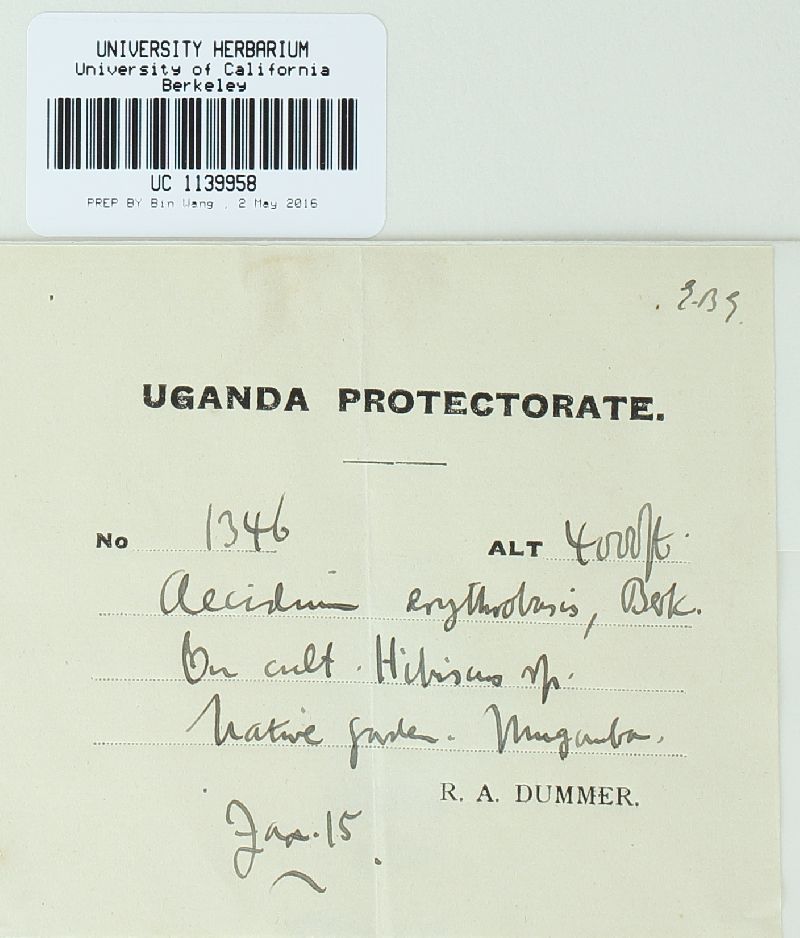 UNIVERSITY HERBARIUM
University of California
Berkeley
UC 1139958
PREP BY Bin Wang , 2 May 2016
UGANDA PROTECTORATE.
No 1346 ALT 4000ft.
Aecidium erythrobasis, Berk.
On cult. Hibiscus sp.
Native garden.
R. A. DUMMER.
Jan. 15